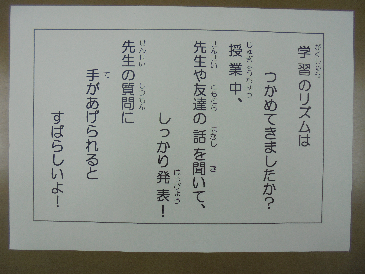 学習のリズムは
つかめてきましたか？
授業中、
先生や友達の話を聞いて、
しっかり発表！
先生の質問に
手があげられると
すばらしいよ！